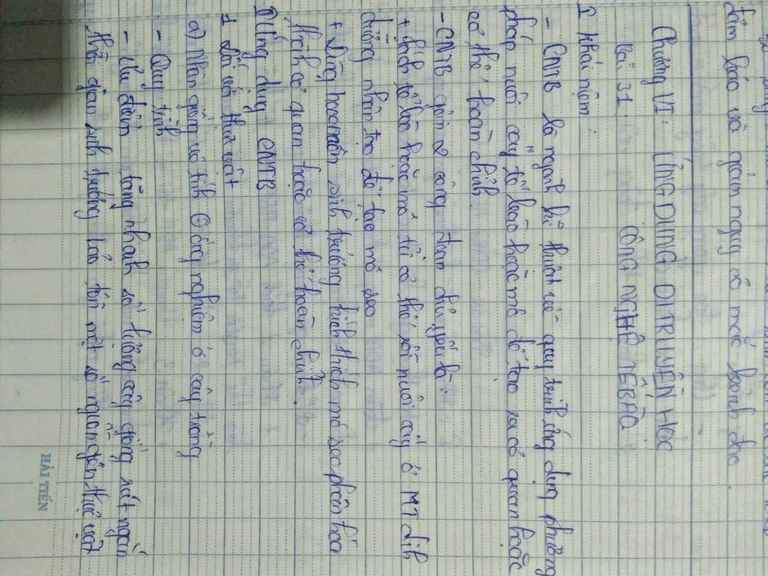 đảm bảo và giảm nguy cơ mắc bệnh cho
Chương VI: ỨNG DỤNG DI TRUYỀN HỌC
Bài 31. CÔNG NGHỆ TẾ BÀO
I Khái niệm:
- CNTB là ngành kĩ thuật về quy trình ứng dụng phương
pháp nuôi cấy tế bào hoặc mô để tạo ra cơ quan hoặc
cơ thể hoàn chỉnh.
- CNTB gồm 2 công đoạn chủ yếu là:
+ tách tế bào hoặc mô từ cơ thể rồi nuôi cấy ở MT dinh
dưỡng nhân tạo để tạo mô sẹo
+ Dùng hoocmôn sinh trưởng kích thích mô sẹo phân hóa
thành cơ quan hoặc cơ thể hoàn chỉnh.
II Ứng dụng CNTB
1 Đối với thực vật
a) Nhân giống vô tính ống nghiệm ở cây trồng
- Quy trình
- Ưu điểm tăng nhanh số lượng cây giống rút ngắn
thời gian sinh trưởng bảo tồn một số nguồn gen thực vật
HẢI TIẾN